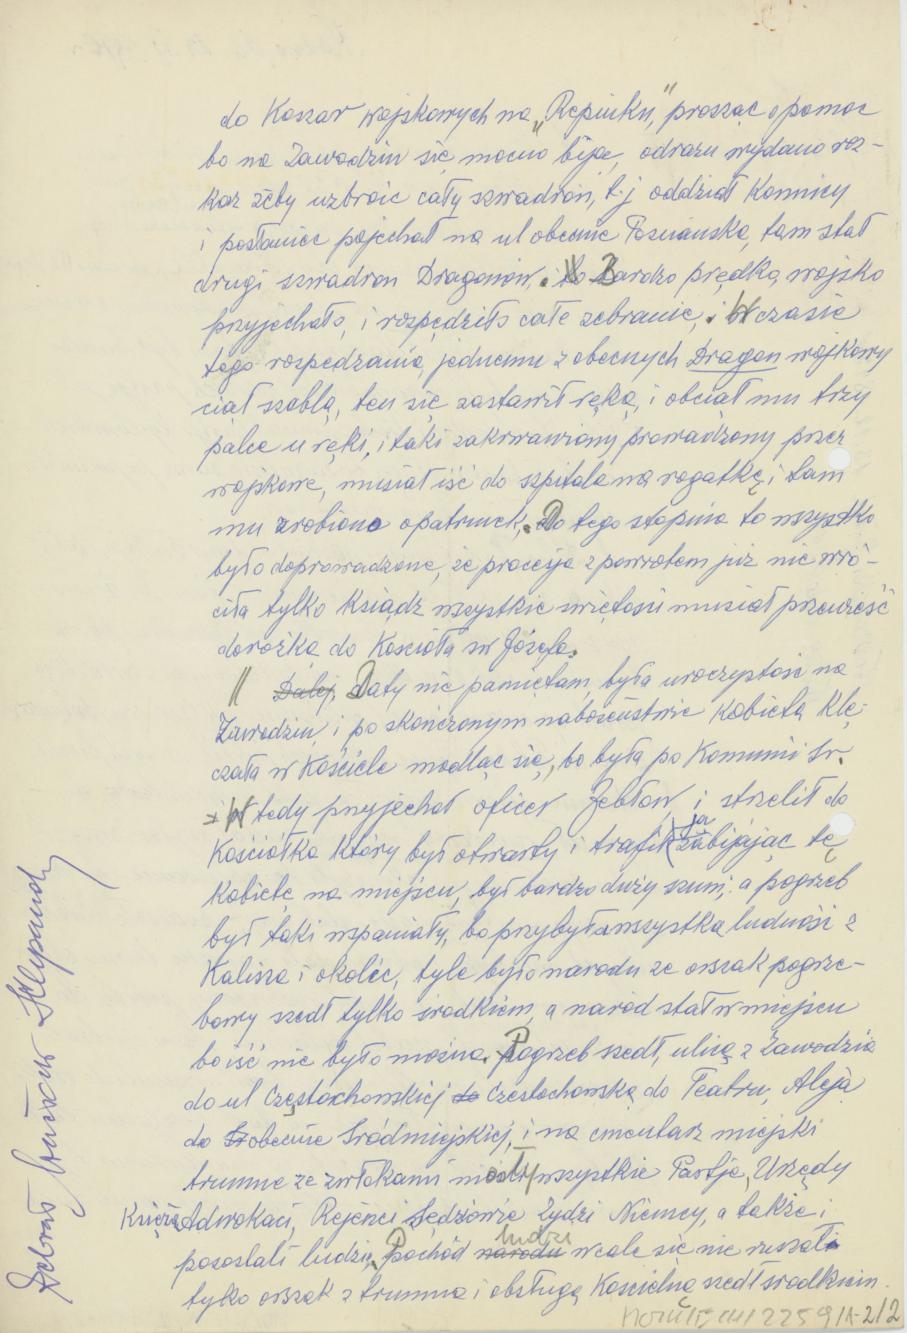 do Koszar wojskowych na „Repinku”, prosząc o pomoc
bo na Zawodziu się mocno biją, odrazu wydano roz-
kaz żeby uzbroić cały szwadron, t.j oddział Konnicy
i posłaniec pojechał na ul obecnie Poznańską, tam stał
drugi szwadron Dragonów. // Bardzo prędko, wojsko
przyjechało, i rozpędziło całe zebranie,. W czasie
tego rozpędzania, jednemu z obecnych Dragon wojkowy
ciął szablą, ten się zastawił ręką, i obciął mu trzy
palce u ręki, i taki zakrwawiony, prowadzony przez
wojskowe, musiał iść do szpitala na rogatkę i tam
mu zrobiono opatrunek,. Do tego stopnia to wszystko
było doprowadzone, że procesja zpowrotem już nie wró-
ciła tylko Ksiądz wszystkie świętości musiał przewieść
dorożką do Kościoła św Józefa.
// Dalej, Daty nie pamiętam, była uroczystość na
Zawodziu, i po skończonym nabożeństwie Kobieta klę-
czała w Kościele modląc się, bo była po Komunii św.
W tedy przyjechał oficer Zebłow i strzelił do
Kościółka który był otwarty i trafił ją zabijając tę
Kobietę na miejscu, był bardzo duży szum, a pogrzeb
był taki wspaniały, bo przybyła wszystka ludność z
Kalisza i okolic, tyle było narodu ze orszak pogrze-
bowy szedł tylko środkiem, a naród stał w miejscu
bo iść nie było można. Pogrzeb szedł, ulicą z Zawodzia
do ul Częstochowskiej do Częstochowską do Teatru, Aleją
do obecnie Śródmiejskiej, i na cmentarz miejski
trumnę ze zwłokami niosły wszystkie Partje, Urzędy
Księża Adwokaci, Rejenci Sędziowie Żydzi Niemcy, a także i
pozostali ludzie. Pochód narodu ludzi wcale się nie ruszał
tylko orszak z trumną i obsługą Kościelną szedł środkiem.
2259/1-2/2